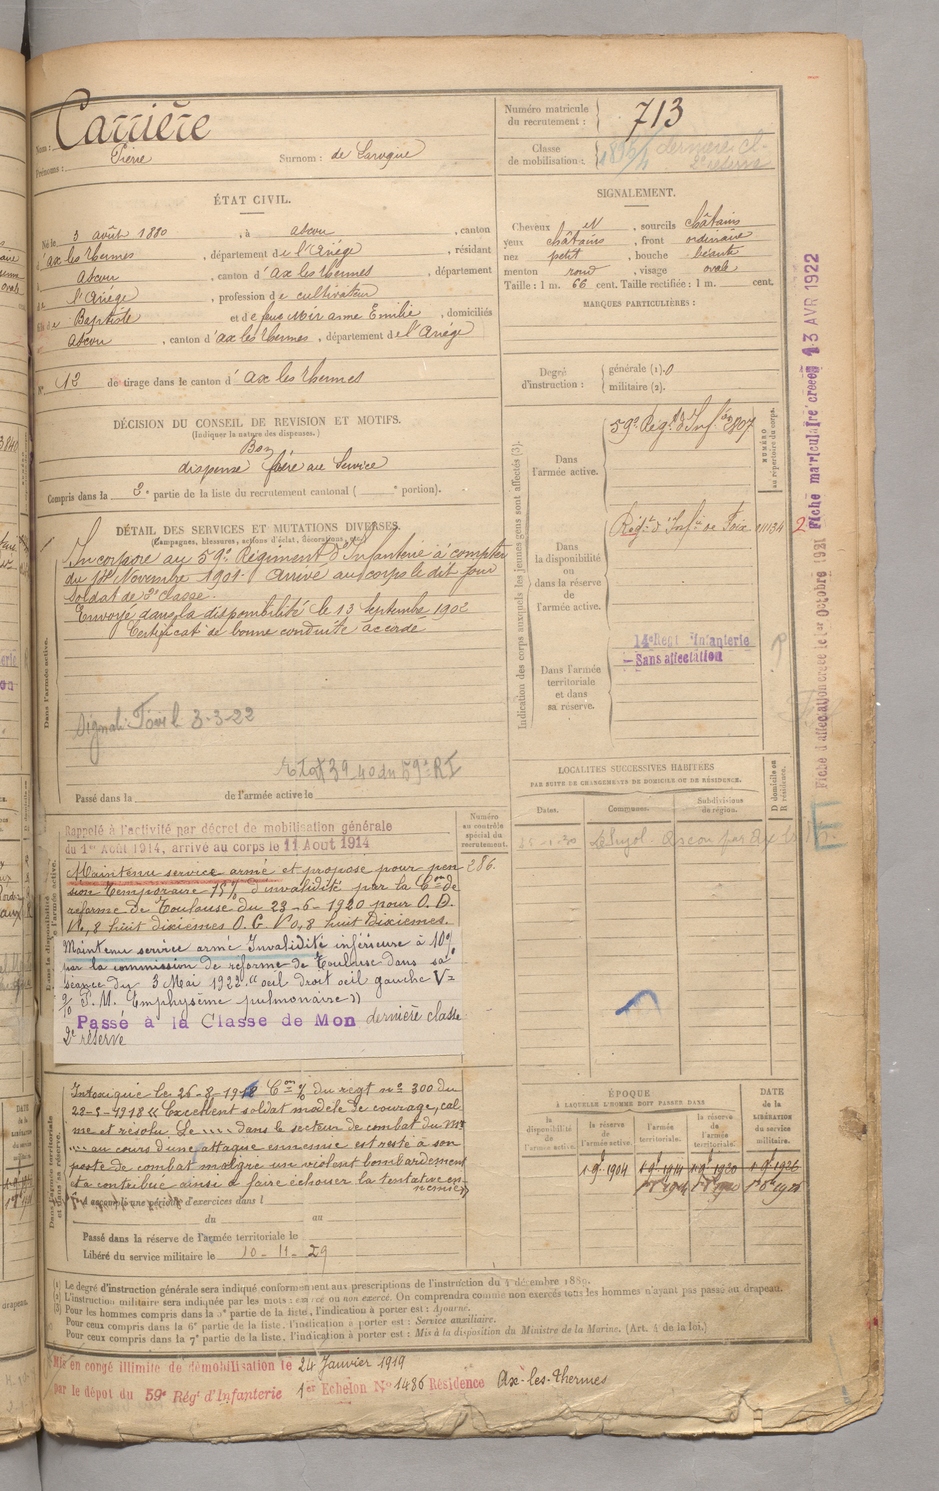 Nom : Carrière
Prénoms : Pierre Surnom : de Laroque
Numéro matricule du recrutement : 713
Classe de mobilisation :
ÉTAT CIVIL.
Né le 3 août 1880, à ascou, canton
d'ax les thermes, département de l'Ariége, résidant
à Ascou, canton d'ax les thermes, département
de l'Ariége, profession de cultivateur
fils de Baptiste et de feue Noir anne Emilie, domiciliés
à ascou, canton d'ax les thermes, département de l'Ariége
N° 12 de tirage dans le canton d' ax les thermes
SIGNALEMENT.
Cheveux et, sourcils châtains
yeux châtains, front ordinaire
nez petit, bouche béante
menton rond, visage ovale
Taille : 1 m. 66 cent. Taille rectifiée : 1 m. cent.
MARQUES PARTICULIÈRES :
Degré d'instruction : générale (1). 0
militaire (2).
DÉCISION DU CONSEIL DE REVISION ET MOTIFS.
(Indiquer la nature des dispenses.)
Bon
dispensé frère au service
Compris dans la 2e partie de la liste du recrutement cantonal ( e portion).
DÉTAIL DES SERVICES ET MUTATIONS DIVERSES.
(Campagnes, blessures, actions d'éclat, décorations, etc.)
Incorporé au 59e Régiment d'Infanterie à compter
du Novembre 1901. Arrivé au corps le dit jour
soldat de 2e classe.
Envoyé dans la disponibilité le 13 Septembre 1902
Certificat de bonne conduite accordé
Dans l'armée active.
3-3-22
39-40 du 59e RI
Passé dans la de l'armée active le
Indication des corps auxquels les jeunes gens sont affectés (3).
Dans l'armée active.
59e Régt d'Infie
NUMÉRO au répertoire du corps.
Dans la disponibilité ou dans la réserve de l'armée active.
Régt d'Infie de Foix
Dans l'armée territoriale et dans sa réserve.
14e Régt Infanterie
Sans affectation
Fiche matriculaire créée 13 AVR 1922
Fiche d'affectation créée le 1er Octobre 1921
LOCALITÉS SUCCESSIVES HABITÉES
PAR SUITE DE CHANGEMENTS DE DOMICILE OU DE RÉSIDENCE.
Dates. Communes. Subdivisions de région. D domicile ou R résidence.
Numéro au contrôle spécial du recrutement.
286.
Rappelé à l'activité par décret de mobilisation générale
du 1er Août 1914, arrivé au corps le 11 Août 1914
Maintenu service armé et proposé pour pen
sion temporaire 15% d'invalidité par la Con de
réforme de Toulouse du 23-6-1920 pour O. D.
V=0,8 huit dixièmes O. G. V=0,8 huit Dixièmes.
Maintenu service armé Invalidité inférieure à 10%
par la commission de réforme de Toulouse dans sa
séance du 3 Mai 1922 "oeil droit oeil gauche V=
9/10 P. M. Emphysème pulmonaire"
Passé à la Classe de Mon dernière classe
2e réserve
Intoxiqué le 26-8-1918 Con % du régt n° 300 du
"Excellent soldat modèle de courage, cal
me et résolu. Le .... dans le secteur de combat du Mt
.... au cours d'une attaque ennemie est resté à son
poste de combat malgré un violent bombardement
et a contribué ainsi à faire échouer la tentative en-
nemie"
A accompli une période d'exercices dans l
du au
Passé dans la réserve de l'armée territoriale le
Libéré du service militaire le 10-11-29
ÉPOQUE
A LAQUELLE L'HOMME DOIT PASSER DANS
la disponibilité de l'armée active. la réserve de l'armée active. l'armée territoriale. la réserve de l'armée territoriale.
DATE de la LIBÉRATION du service militaire.
1 9bre 1904 1 9bre 1914 1 9bre 1920 1 9bre 1926
(1) Le degré d'instruction générale sera indiqué conformément aux prescriptions de l'instruction du 4 décembre 1889.
(2) L'instruction militaire sera indiquée par les mots : exercé ou non exercé. On comprendra comme non exercés tous les hommes n'ayant pas passé au drapeau.
(3) Pour les hommes compris dans la 5e partie de la liste, l'indication à porter est : Ajourné.
Pour ceux compris dans la 6e partie de la liste, l'indication à porter est : Service auxiliaire.
Pour ceux compris dans la 7e partie de la liste, l'indication à porter est : Mis à la disposition du Ministre de la Marine. (Art. 4 de la loi.)
Mis en congé illimité de démobilisation le 24 Janvier 1919
par le dépôt du 59e Régt d'Infanterie 1er Echelon No 1486 Résidence Ax-les-Thermes